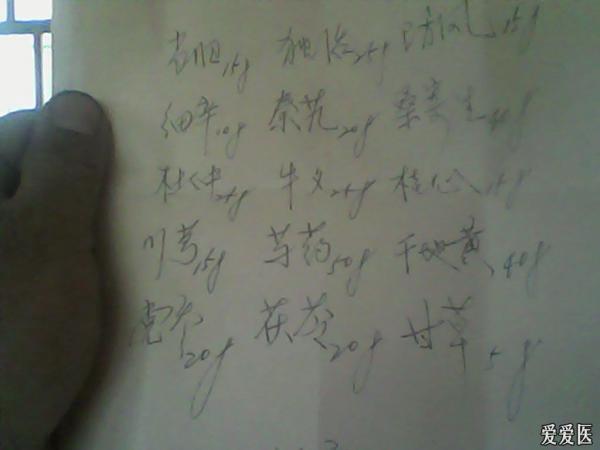 15g 独活25g 防风15g
细辛10g 秦艽20g 桑寄生40g
杜仲25g 牛夕25g 桂心15g
川芎15g 芍药50g 干地黄40g
党参20g 茯苓20g 甘草5g
爱爱医